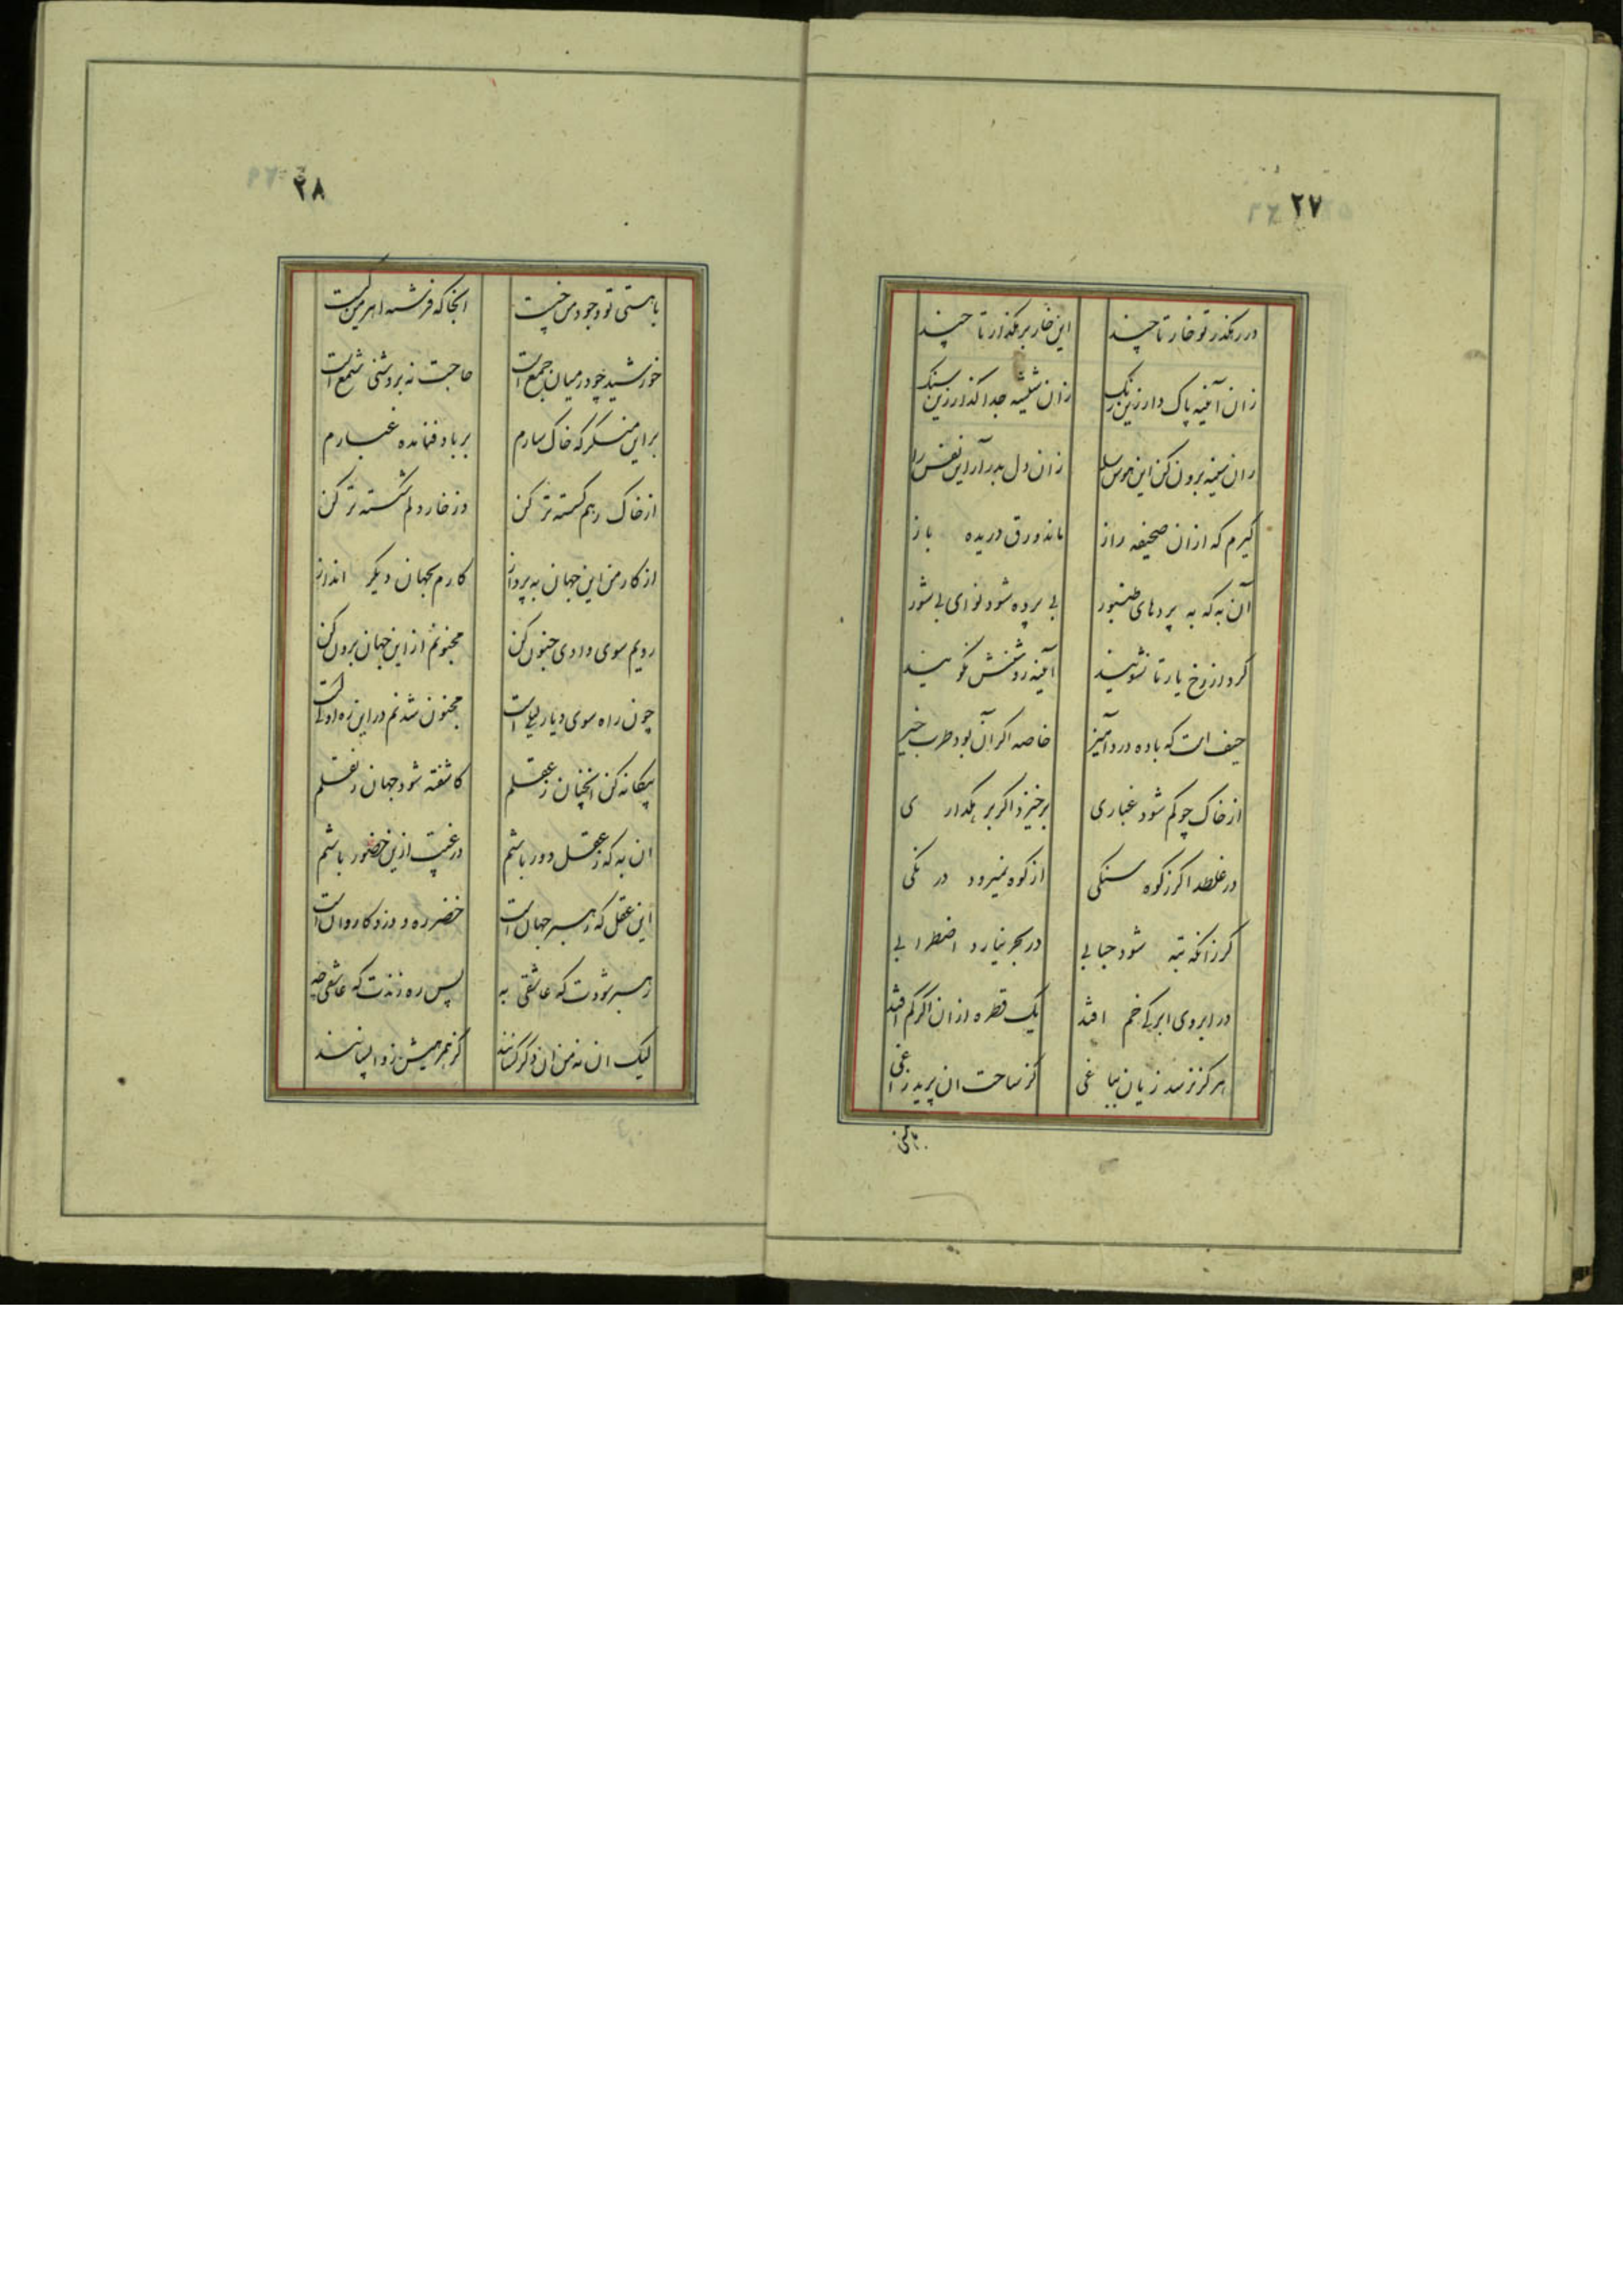 ۲۷
در رهگذر تو خار تا چند این خار برهگذار تا چند
زان آینه پاک دار زین زنگ زان شیشه جدا گذار زین سنگ
زان سینه برون کن این هوس را زان دل بدر آر این نفس را
گیرم که ازان صحیفه راز ماند ورق دریده باز
آن به که به پردهای طنبور بی پرده شود نوای بی شور
گرد از رخ یار تا نشویند آینه روشنش نگویند
حیف است که باده درد آمیز خاصه اگر آن بود طرب خیز
از خاک چو کم شود غباری برخیزد اگر برهگذاری
در غلطد اگر ز کوه سنگی از کوه نمیرود درنگی
گر زانکه تبه شود حبابی در بحر نیارد اضطرابی
در ابروی ابر کی خم افتد یک قطره ازان اگر کم افتد
هرگز نرسد زیان بباغی کز ساحت ان پرید زاغی
۲۸
با هستی تو وجود من چیست انجا که فرشته اهرمن کیست
خورشید چو در میان جمع است حاجت نه بروشنی شمع است
براین منگر که خاکسارم بر باد فنا مده غبارم
از خاک رهم گسسته تر کن وز خار دلم شکسته تر کن
از کار من این جهان به پرداز کارم بجهان دیگر انداز
رویم سوی وادی جنون کن مجنونم از این جهان برون کن
چون راه سوی دیار لیلی است مجنون شدنم در این ره اولی است
بیگانه کن انچنان ز عقلم کاشفته شود جهان ز نقلم
ان به که ز عقل دور باشم در غیبت ازین حضور باشم
این عقل که رهبر جهان است خضر ره و دزد کاروان است
رهبر شودت که عاشقی به پس ره زندت که عاشقی چه
لیک ان نه من ان دگر کسانند کز همرهیش ز واپسانند